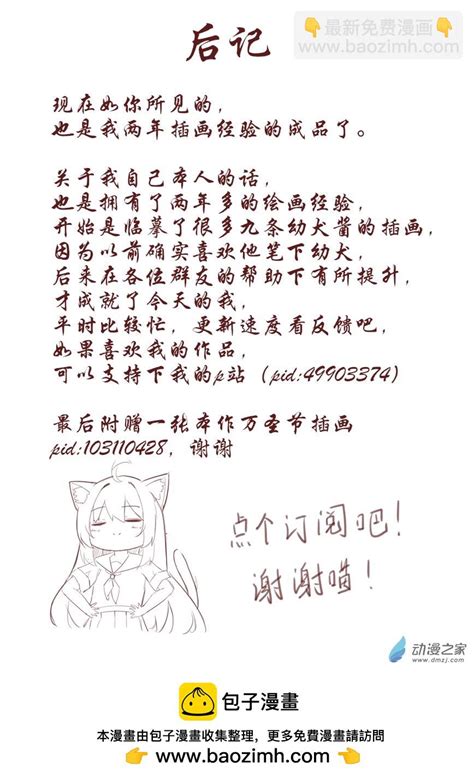 最新免费漫画
www.baozimh.com
后记
现在如你所见的，
也是我两年插画经验的成品了。
关于我自己本人的话，
也是拥有了两年多的绘画经验，
开始是临摹了很多九条幼犬酱的插画，
因为以前确实喜欢他笔下幼犬，
后来在各位群友的帮助下有所提升，
才成就了今天的我，
平时比较忙，更新速度看反馈吧，
如果喜欢我的作品，
可以支持下我的p站（pid:49903374）
最后附赠一张本作万圣节插画
pid:103110428，谢谢
点个订阅吧！
谢谢喵！
动漫之家
www.dmzj.com
包子漫畫
本漫畫由包子漫畫收集整理，更多免費漫畫請訪問
www.baozimh.com